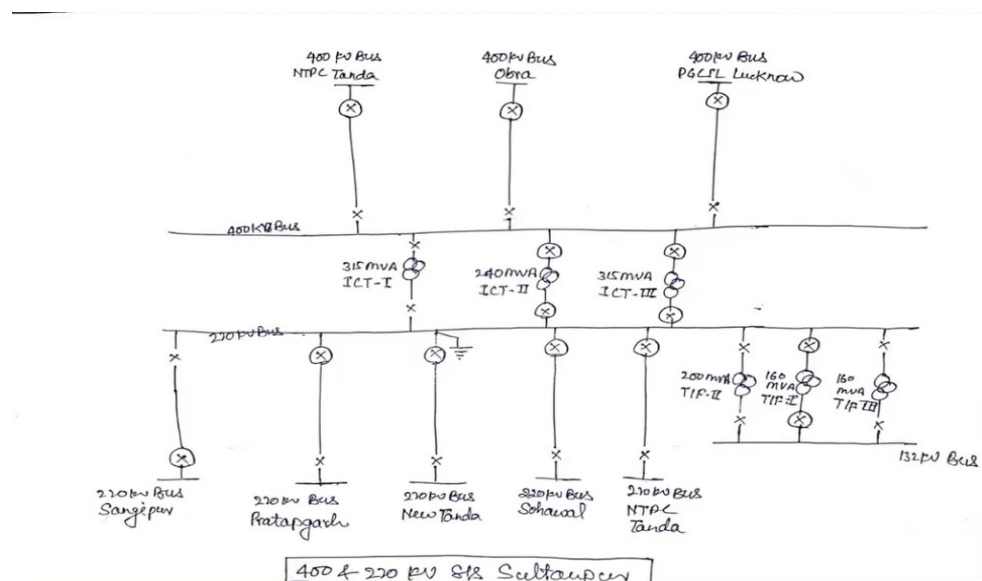 400 kv Bus
NTPC Tanda
400 kv Bus
Obra
400 kv Bus
PGCIL Lucknow
400 KV Bus
315 MVA
ICT-I
240 MVA
ICT-II
315 MVA
ICT-III
220 kv Bus
200 MVA
T/F-II
160
MVA
T/F-I
160
MVA
T/F III
132 kv Bus
220 kv Bus
Sangipur
220 kv Bus
Pratapgarh
220 kv Bus
New Tanda
220 kv Bus
Sohawal
220 kv Bus
NTPC
Tanda
400 & 220 KV S/S Sultanpur